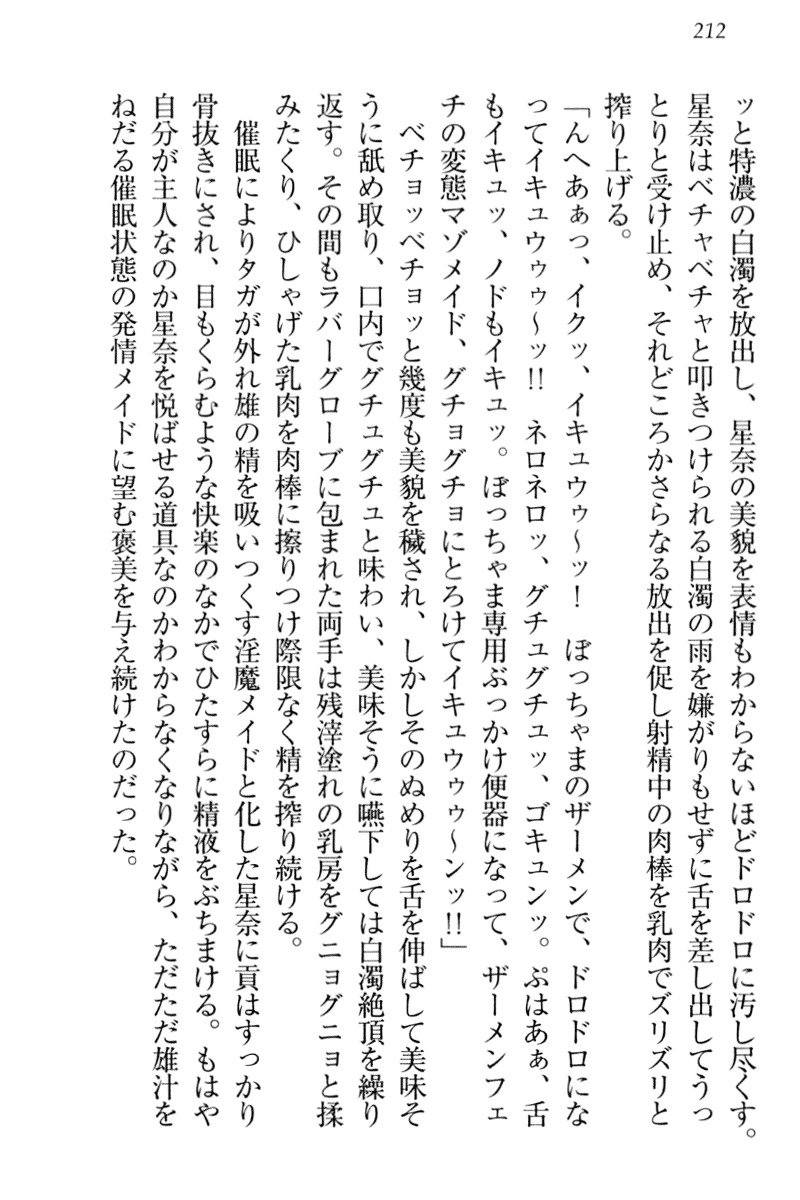 212
ッと特濃の白濁を放出し、星奈の美貌を表情もわからないほどドロドロに汚し尽くす。
星奈はベチャベチャと叩きつけられる白濁の雨を嫌がりもせずに舌を差し出してうっ
とりと受け止め、それどころかさらなる放出を促し射精中の肉棒を乳肉でズリズリと
搾り上げる。
「んへあぁっ、イクッ、イキュウゥ〜ッ！　ぼっちゃまのザーメンで、ドロドロにな
ってイキュウゥゥ〜ッ!!　ネロネロッ、グチュグチュッ、ゴキュンッ。ぷはあぁ、舌
もイキュッ、ノドもイキュッ。ぼっちゃま専用ぶっかけ便器になって、ザーメンフェ
チの変態マゾメイド、グチョグチョにとろけてイキュウゥゥ〜ンッ!!」
　ベチョッベチョッと幾度も美貌を穢され、しかしそのぬめりを舌を伸ばして美味そ
うに舐め取り、口内でグチュグチュと味わい、美味そうに嚥下しては白濁絶頂を繰り
返す。その間もラバーグローブに包まれた両手は残滓塗れの乳房をグニョグニョと揉
みたくり、ひしゃげた乳肉を肉棒に擦りつけ際限なく精を搾り続ける。
　催眠によりタガが外れ雄の精を吸いつくす淫魔メイドと化した星奈に貢はすっかり
骨抜きにされ、目もくらむような快楽のなかでひたすらに精液をぶちまける。もはや
自分が主人なのか星奈を悦ばせる道具なのかわからなくなりながら、ただただ雄汁を
ねだる催眠状態の発情メイドに望む褒美を与え続けたのだった。